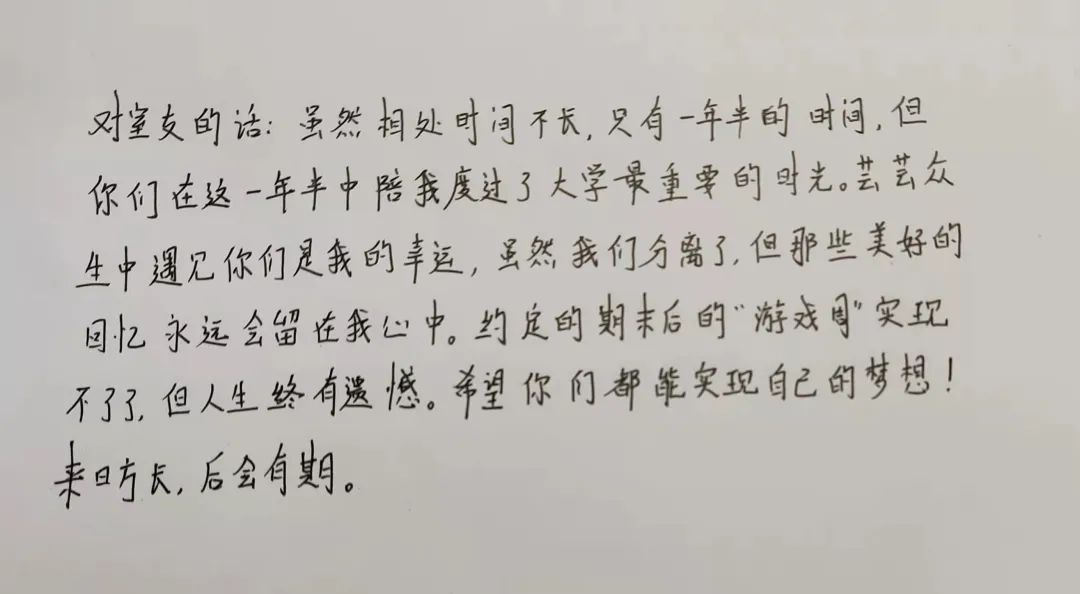 对室友的话：虽然相处时间不长，只有一年半的时间，但
你们在这一年半中陪我度过了大学最重要的时光。芸芸众
生中遇见你们是我的幸运，虽然我们分离了，但那些美好的
回忆永远会留在我心中。约定的期末后的“游戏周”实现
不了了，但人生终有遗憾。希望你们都能实现自己的梦想！
来日方长，后会有期。